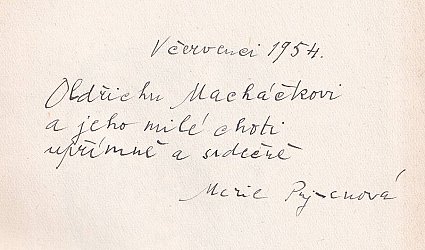 V červenci 1954.
Oldřichu Macháčkovi
a jeho milé choti
upřímně a srdečně
Marie Pujmanová